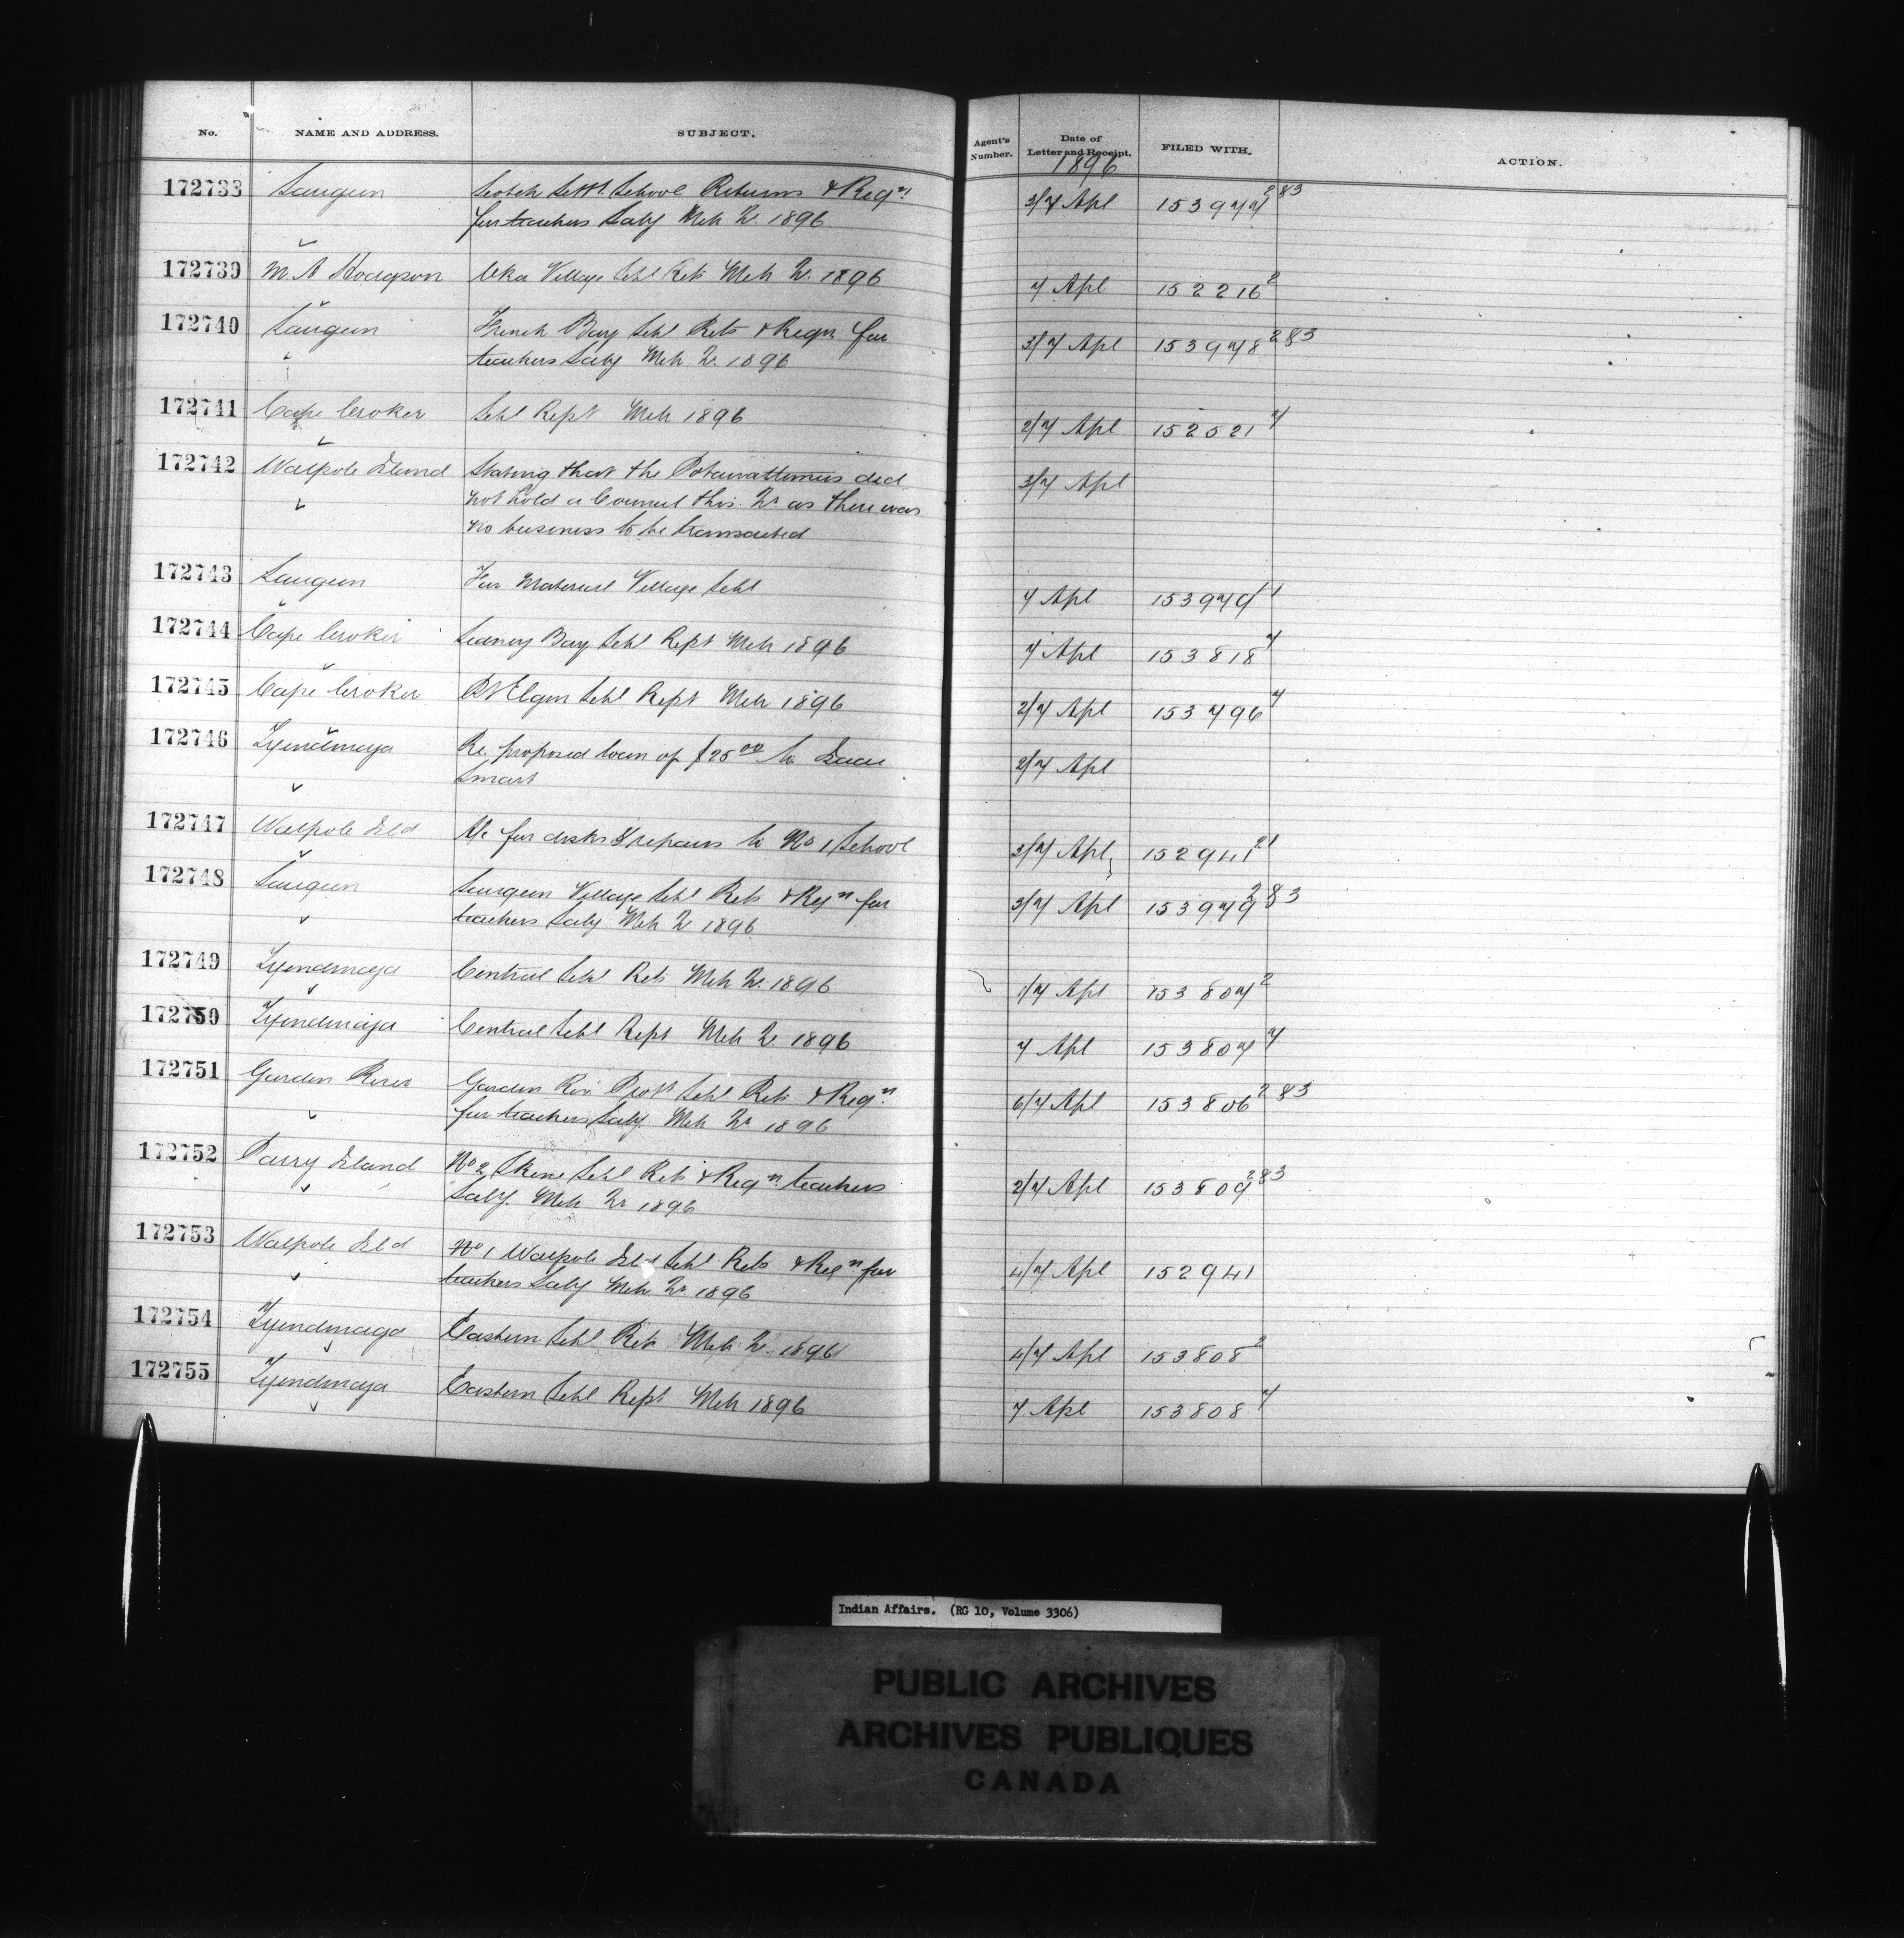 No. NAME AND ADDRESS. SUBJECT. Agent's Number. Date of Letter and Receipt. FILED WITH. ACTION.
1896
172733 Saugeen Scotch Settt. School Returns & Reqn. 3/7 Apl 153977 2&3
for teachers Saly Mch Qr. 1896
172739 M. A Hodgson Oka Village Schl Rets Mch Qr. 1896 7 Apl 152216 2
172740 Saugeen French Bay Schl Rets & Reqn for 3/7 Apl 153978 2&3
teachers Saly Mch Qr. 1896
172741 Cape Croker Schl Rept Mch 1896 2/7 Apl 152521 7
172742 Walpole Island Stating that the Potawattamies did 3/7 Apl
not hold a Council this Qr as there was
no business to be transacted
172743 Saugeen For Material Village Schl 7 Apl 153979 1
172744 Cape Croker Sidney Bay Schl Rept Mch 1896 7 Apl 153818 7
172745 Cape Croker Pt Elgin Schl Rept Mch 1896 2/7 Apl 153796 7
172746 Tyendinaga Re. proposed loan of $25.00 to Isaac 2/7 Apl
Smart
172747 Walpole Isld A/c for desks & repairs to No 1 School 3/7 Apl 152941 21
172748 Saugeen Saugeen Village Schl Rets & Reqn for 3/7 Apl 153979 2&3
teachers Saly Mch Qr 1896
172749 Tyendinaga Central Schl Rets Mch Qr. 1896 1/7 Apl 153807 2
172750 Tyendinaga Central Schl Rept Mch Qr. 1896 7 Apl 153807 7
172751 Garden River Garden Riv. Prott Schl Rets & Reqn. 6/7 Apl 153806 2&3
for teachers Saly. Mch Qr 1896
172752 Parry Island No 2 Skene Schl Rets & Reqn teachers 2/7 Apl 153809 2&3
Saly. Mch Qr 1896
172753 Walpole Isld No 1 Walpole Isld Schl Rets & Reqn for 4/7 Apl 152941
teachers Saly Mch Qr 1896
172754 Tyendinaga Eastern Schl Rets Mch Qr. 1896 4/7 Apl 153808 2
172755 Tyendinaga Eastern Schl Rept Mch 1896 7 Apl 153808 7
Indian Affairs. (RG 10, Volume 3306)
PUBLIC ARCHIVES
ARCHIVES PUBLIQUES
CANADA